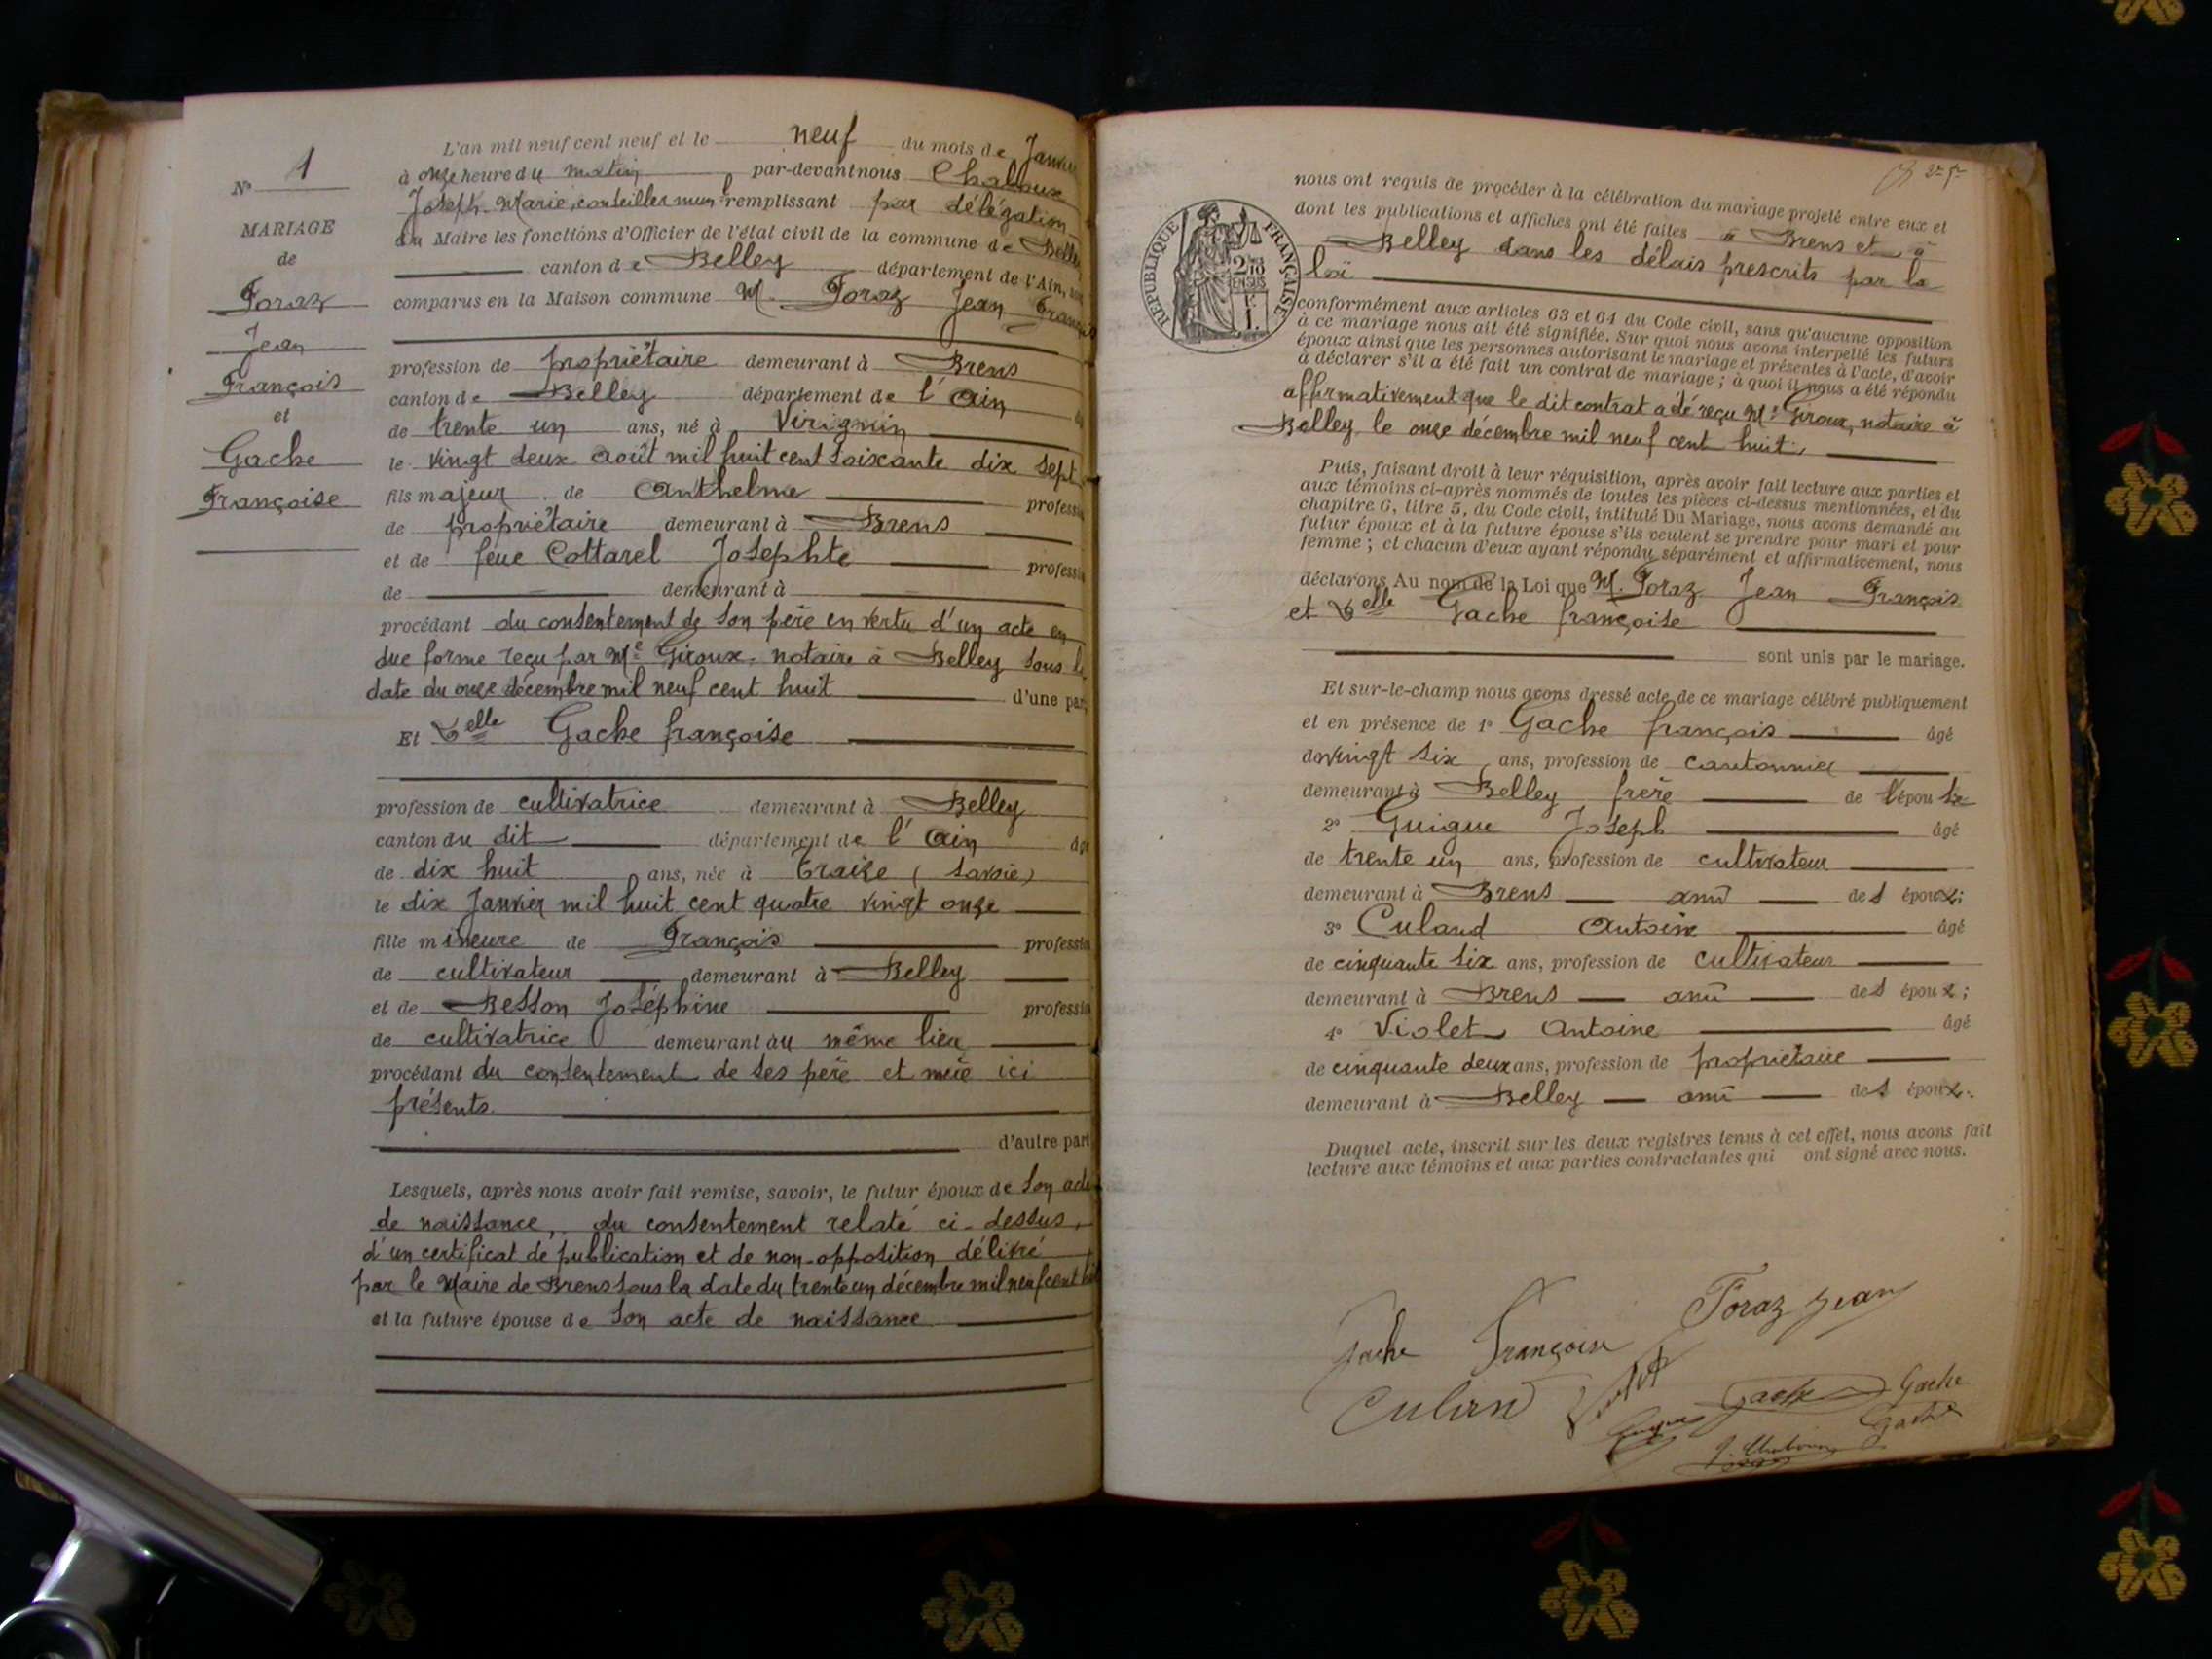 N° 1
MARIAGE
de
Foraz
Jean
François
et
Gache
Françoise
L'an mil neuf cent neuf et le neuf du mois de Janvier
à onze heure du matin par-devant nous
Joseph-Marie, conseiller munl remplissant par délégation
du Maire les fonctions d'Officier de l'état civil de la commune de Belley
canton de Belley département de l'Ain,
comparus en la Maison commune M. Foraz Jean François
profession de propriétaire demeurant à Brens
canton de Belley département de l'Ain
de trente un ans, né à Virignin
le vingt deux août mil huit cent soixante dix sept
fils majeur de Anthelme profession
de propriétaire demeurant à Brens
et de feue Cottarel Josephte profession
de demeurant à
procédant du consentement de son père en vertu d'un acte en
due forme reçu par Me Giroux, notaire à Belley sous la
date du onze décembre mil neuf cent huit d'une part,
Et Delle Gache françoise
profession de cultivatrice demeurant à Belley
canton du dit département de l'Ain
de dix huit ans, née à Traize (Savoie)
le dix Janvier mil huit cent quatre vingt onze
fille mineure de François profession
de cultivateur demeurant à Belley
et de Besson Joséphine profession
de cultivatrice demeurant au même lieu
procédant du consentement de ses père et mère ici
présents
d'autre part
Lesquels, après nous avoir fait remise, savoir, le futur époux de son acte
de naissance, du consentement relaté ci-dessus,
d'un certificat de publication et de non-opposition délivré
par le Maire de Brens sous la date du trente un décembre mil neuf cent huit
et la future épouse de son acte de naissance
RÉPUBLIQUE FRANÇAISE
nous ont requis de procéder à la célébration du mariage projeté entre eux et
dont les publications et affiches ont été faites à Brens et à
Belley dans les délais prescrits par la
loi
conformément aux articles 63 et 64 du Code civil, sans qu'aucune opposition
à ce mariage nous ait été signifiée. Sur quoi nous avons interpellé les futurs
époux ainsi que les personnes autorisant le mariage et présentes à l'acte, d'avoir
à déclarer s'il a été fait un contrat de mariage ; à quoi il nous a été répondu
affirmativement que le dit contrat a été reçu Me Giroux, notaire à
Belley le onze décembre mil neuf cent huit.
Puis, faisant droit à leur réquisition, après avoir fait lecture aux parties et
aux témoins ci-après nommés de toutes les pièces ci-dessus mentionnées, et du
chapitre 6, titre 5, du Code civil, intitulé Du Mariage, nous avons demandé au
futur époux et à la future épouse s'ils veulent se prendre pour mari et pour
femme ; et chacun d'eux ayant répondu séparément et affirmativement, nous
déclarons Au nom de la Loi que M. Foraz Jean François
et Delle Gache françoise
sont unis par le mariage.
Et sur-le-champ nous avons dressé acte de ce mariage célébré publiquement
et en présence de 1° Gache françois âgé
de vingt six ans, profession de cantonnier
demeurant à Belley frère de l'épouse
2° Guigue Joseph âgé
de trente un ans, profession de cultivateur
demeurant à Brens ami des époux;
3° Culand Antoine âgé
de cinquante six ans, profession de cultivateur
demeurant à Brens ami des époux;
4° Violet Antoine âgé
de cinquante deux ans, profession de propriétaire
demeurant à Belley ami des époux.
Duquel acte, inscrit sur les deux registres tenus à cet effet, nous avons fait
lecture aux témoins et aux parties contractantes qui ont signé avec nous.
Foraz Jean
Gache Françoise
Culand Gache Gache
Gache